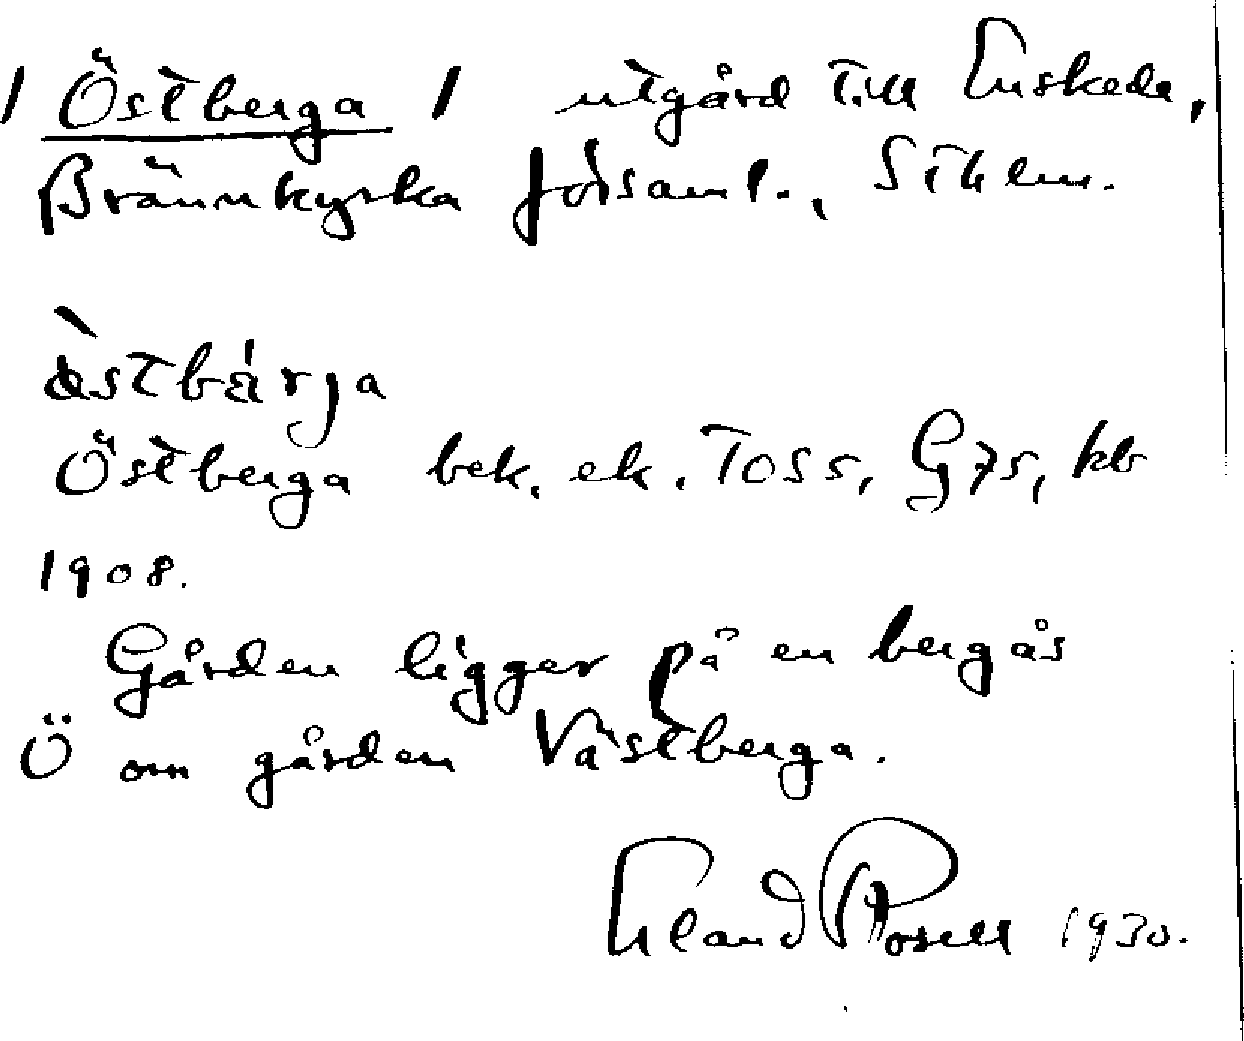 / Östberga / utgård till Enskede,
Brännkyrka församl., Sthlm.
östbärja
Östberga bek. ek. T055, G75, kb
1908.
Gården ligger på en bergås
Ö om gården Västberga.
Erland Rosell 1930.